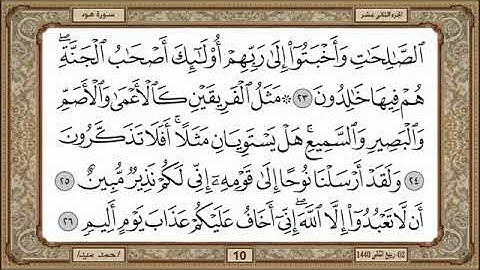 الجزء الثاني عشر
سورة هود
ٱلصَّٰلِحَٰتِ وَأَخۡبَتُوٓاْ إِلَىٰ رَبِّهِمۡ أُوْلَٰٓئِكَ أَصۡحَٰبُ ٱلۡجَنَّةِۖ
هُمۡ فِيهَا خَٰلِدُونَ ٢٣ ۞ مَثَلُ ٱلۡفَرِيقَيۡنِ كَٱلۡأَعۡمَىٰ وَٱلۡأَصَمِّ
وَٱلۡبَصِيرِ وَٱلسَّمِيعِۚ هَلۡ يَسۡتَوِيَانِ مَثَلًاۚ أَفَلَا تَذَكَّرُونَ
٢٤ وَلَقَدۡ أَرۡسَلۡنَا نُوحًا إِلَىٰ قَوۡمِهِۦٓ إِنِّي لَكُمۡ نَذِيرٞ مُّبِينٌ ٢٥
أَن لَّا تَعۡبُدُوٓاْ إِلَّا ٱللَّهَۖ إِنِّيٓ أَخَافُ عَلَيۡكُمۡ عَذَابَ يَوۡمٍ أَلِيمٖ ٢٦
02- ربيع الثاني 1440
10
أحمد